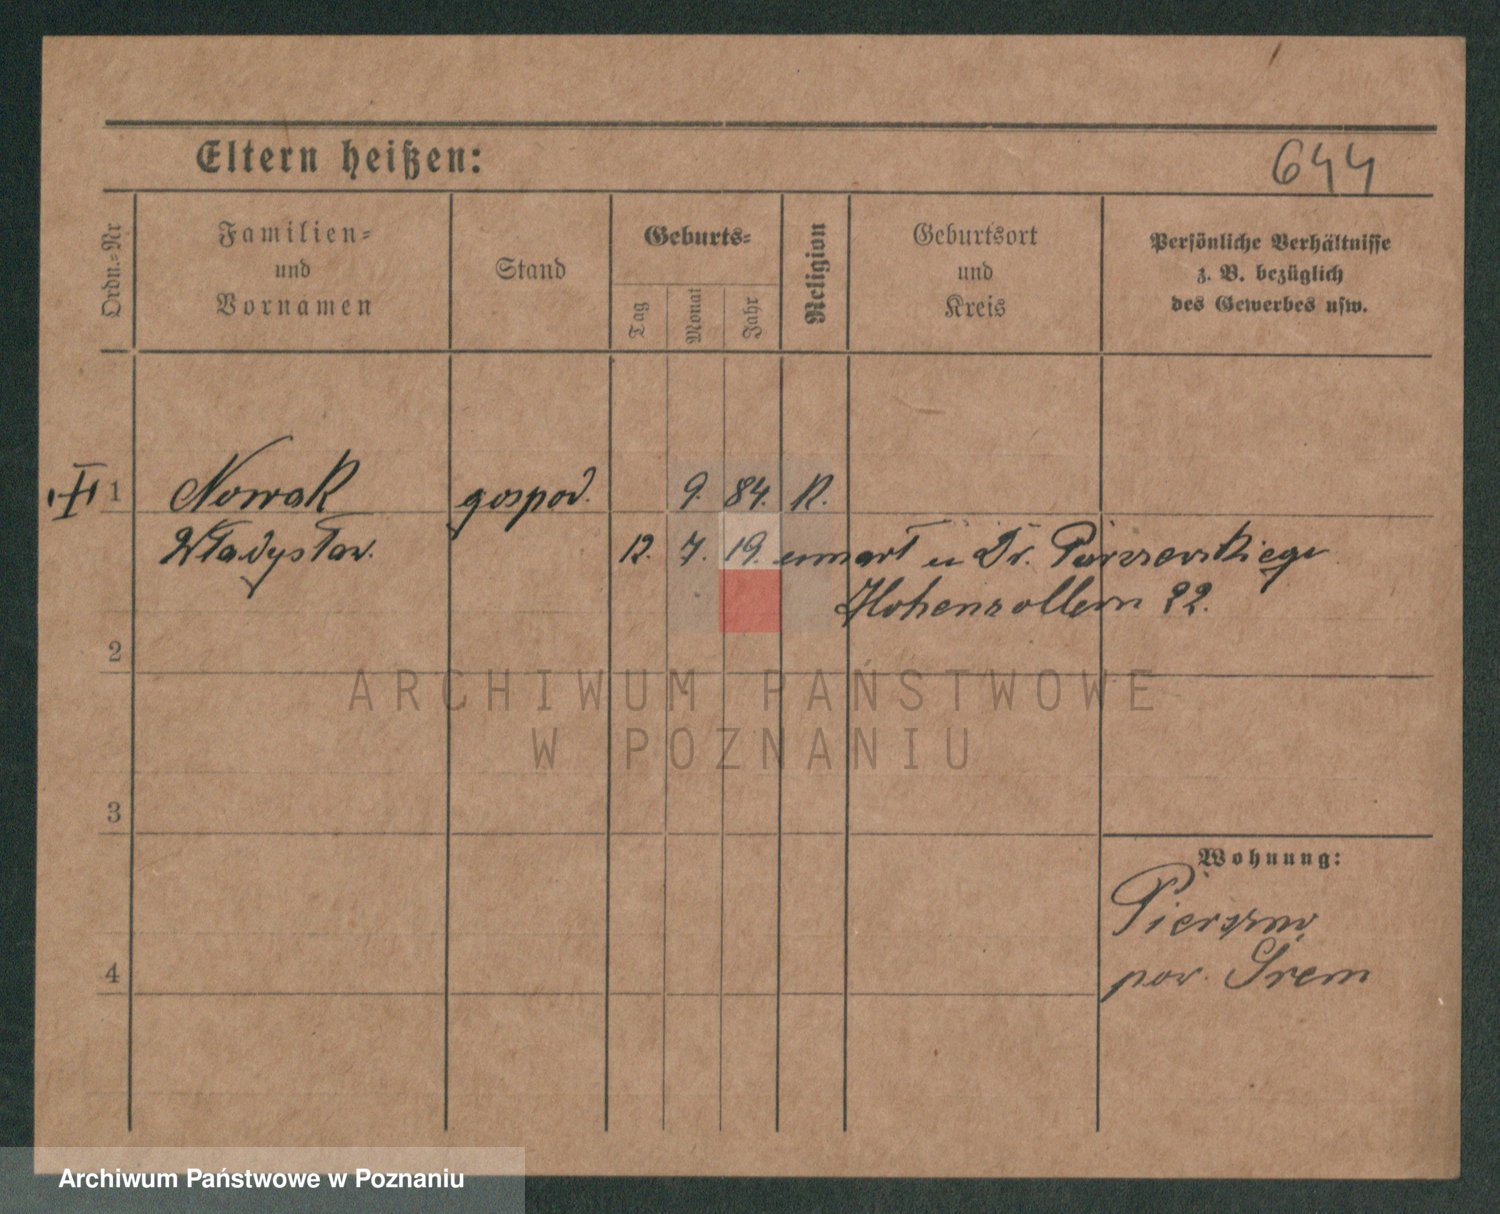 Eltern heißen:
644
Ordn.-Nr
Familien-
und
Vornamen
Stand
Geburts-
Tag
Monat
Jahr
Religion
Geburtsort
und
Kreis
Persönliche Verhältnisse
z. B. bezüglich
des Gewerbes usw.
1 Nowak gospod. 9. 84. K.
Władysław. 12. 7. 19. umarł u Dr.
Hohenzollern 22.
2
ARCHIWUM PAŃSTWOWE
W POZNANIU
3
Wohnung:
4
pow. Śrem
Archiwum Państwowe w Poznaniu